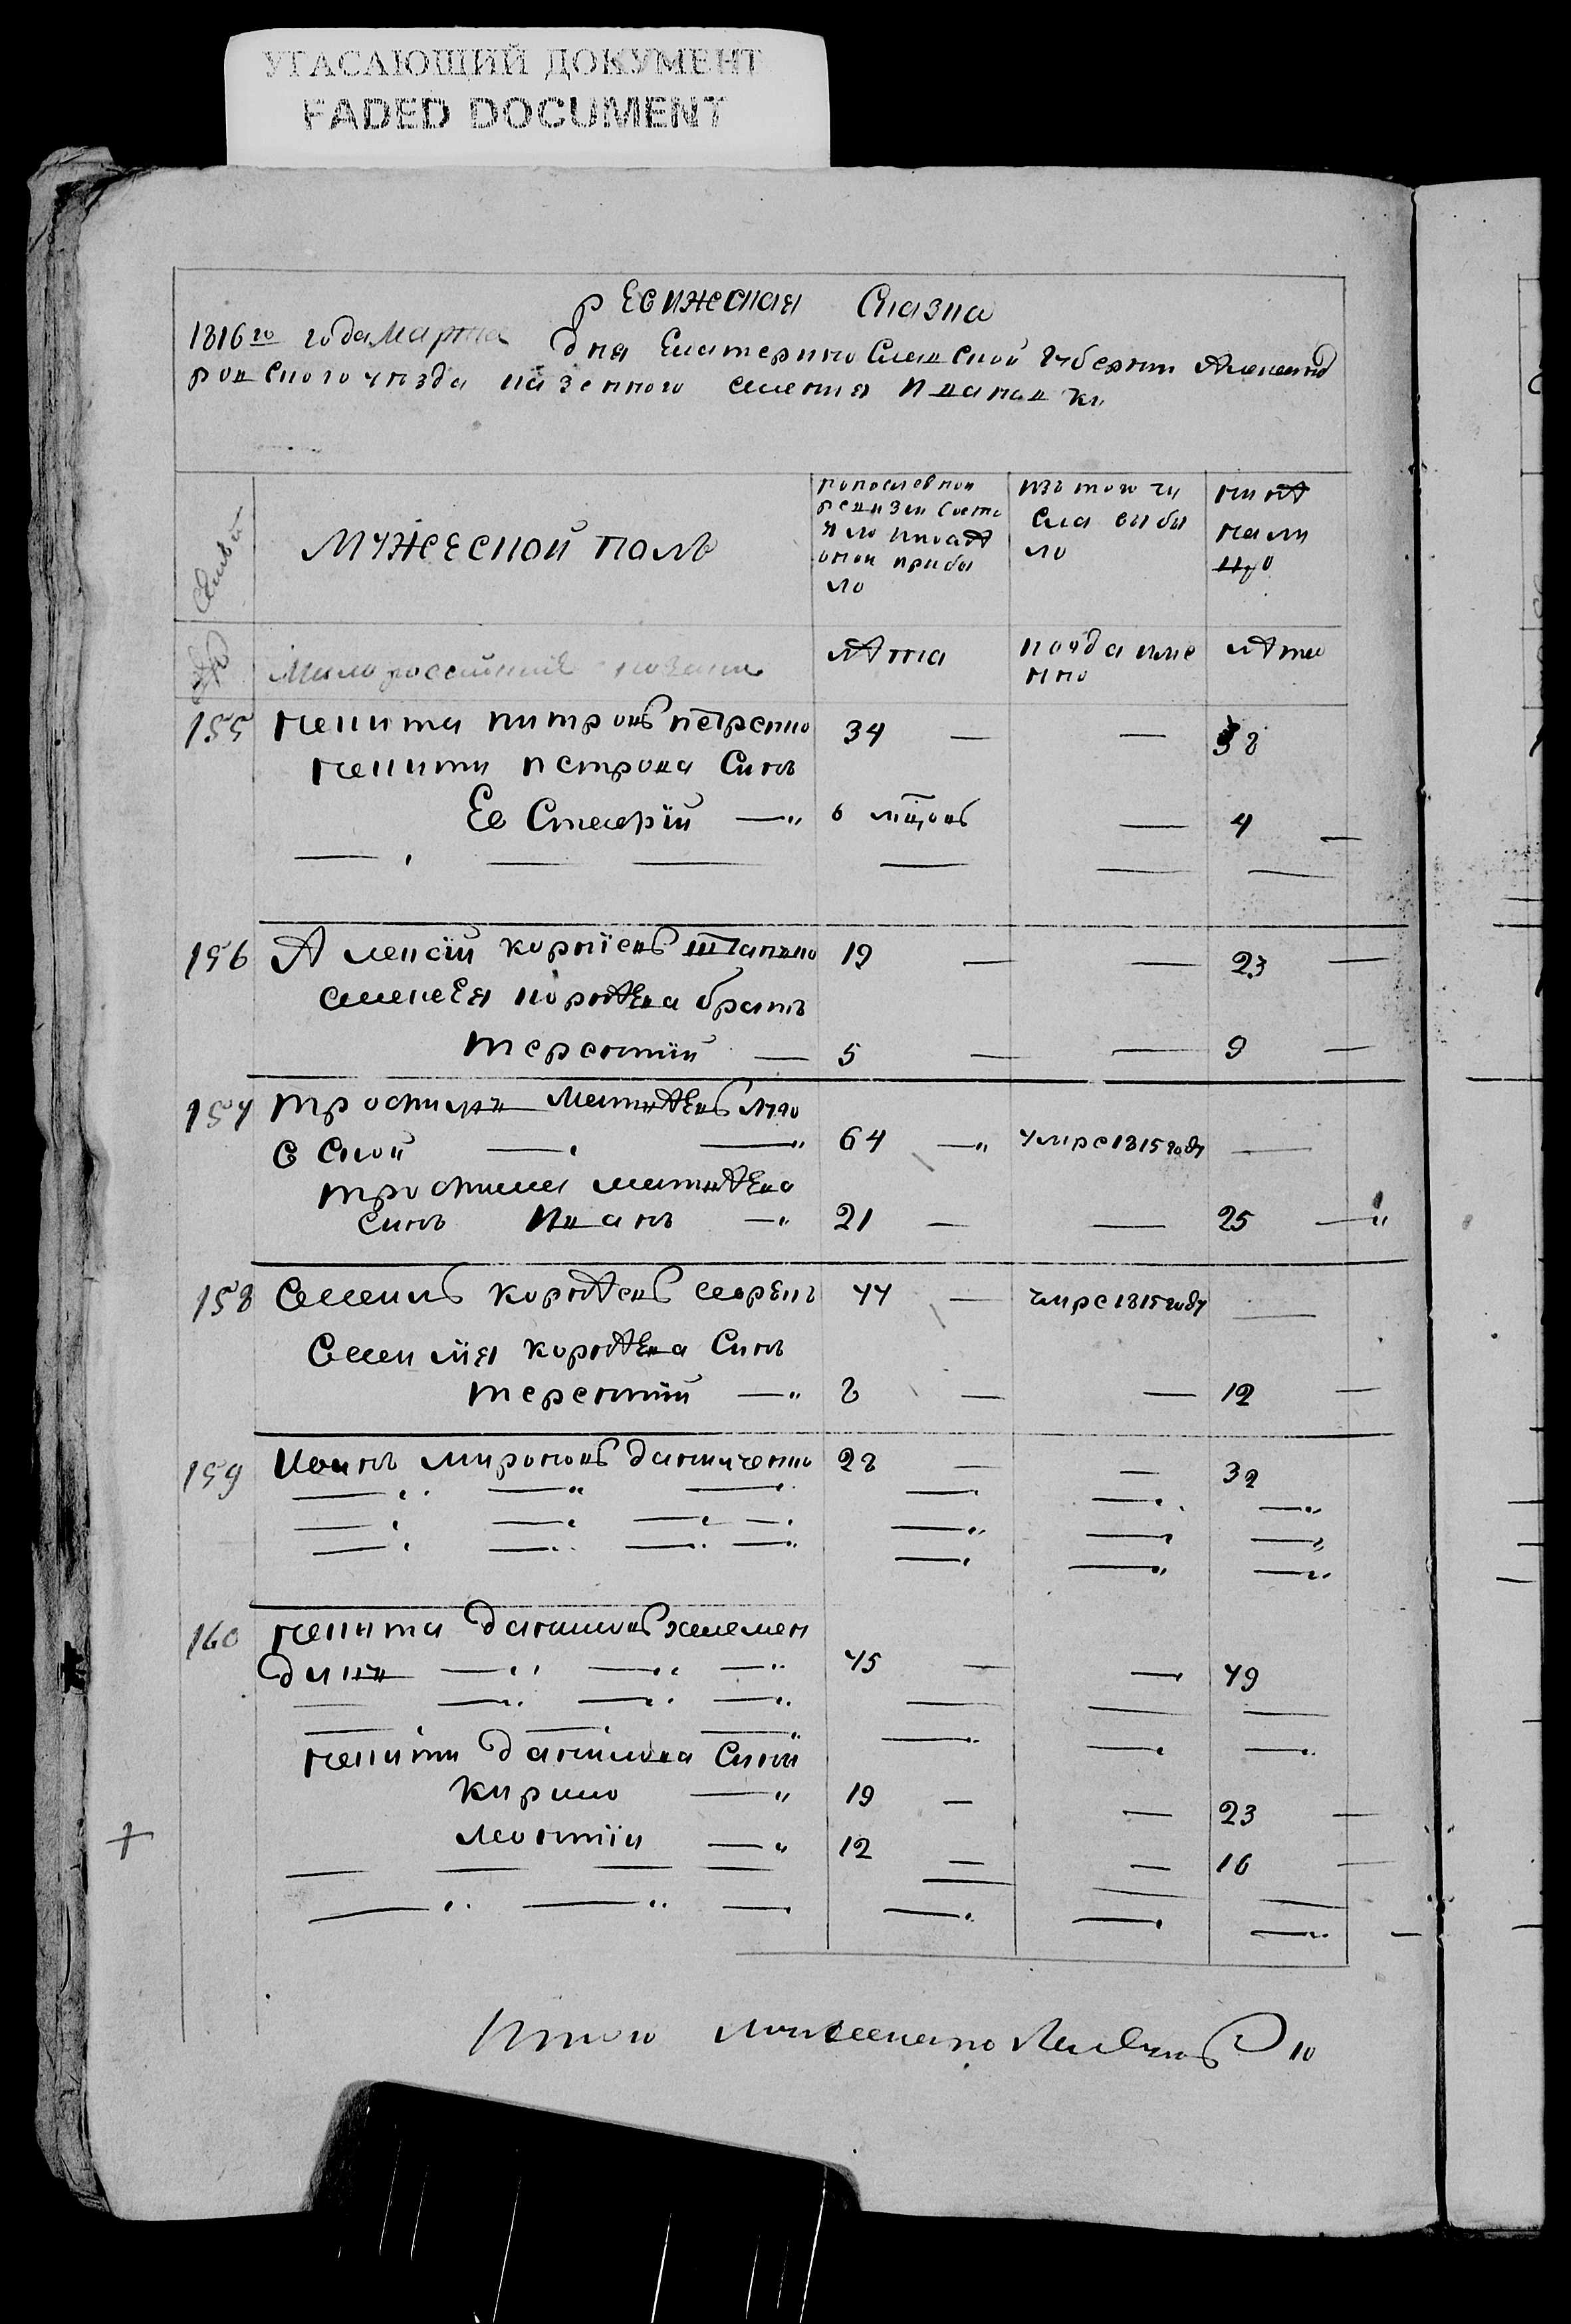 УГАСАЮЩИЙ ДОКУМЕНТ
FADED DOCUMENT
ревижская Сказка
1816го года Марта дня Екатеринославской губернии Александ
ровского уезда казенного селения Ивановки
Семьи
мужеской полъ
по последней
ревизии состо
яло и после
оной прибы
ло
изъ того чи
сла выбы
ло
ныне
на ли
цо
Малороссийские козаки
лета
когда име
нно
лета
155 Никита питровъ петренко 34 — — 38
Никиты петрова Сынъ
Евстафїй — 6 мцовъ — 4
156 Алексїй корнїевъ 19 — — 23
Алексея корнеева братъ
терентїй — 5 — — 9
157 трофимъ Матвеевъ
64 — умре 1815 году —
трофима матвеева
сынъ Иванъ — 21 — — 25
158 корнеевъ 44 — умре 1815 году —
корнеева Сынъ
терентїй — 8 — — 12
159 Иванъ мироновъ 28 — — 32
160 Никита даниловъ
45 — — 49
Никиты данилова Сыны
кирило — 19 — — 23
леонтїи — 12 — — 16
Итого мужеска налицо 10